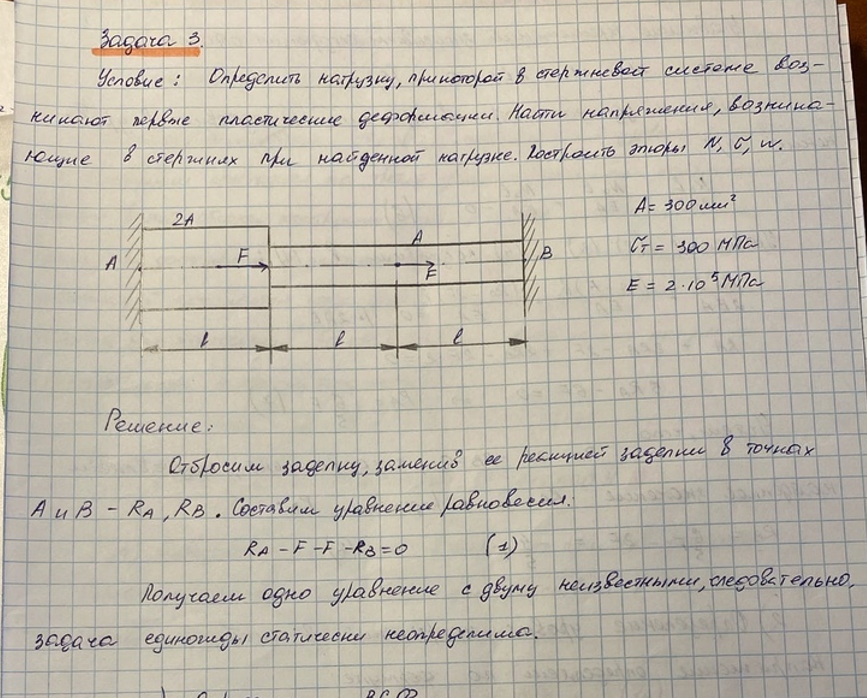 Задача 3.
Условие: Определить нагрузку, при которой в стержневой системе воз-
никают первые пластические деформации. Найти напряжения, возника-
ющие в стержнях при найденной нагрузке. Построить эпюры N, σ, w.
2A
A = 300 мм²
A
σт = 300 МПа
A F F B
E = 2·10⁵ МПа
l l l
Решение:
Отбросим заделку, заменив ее реакцией заделки в точках
A и B – RA, RB. Составим уравнение равновесия:
RA – F – F – RB = 0 (1)
Получаем одно уравнение с двумя неизвестными, следовательно,
задача единожды статически неопределима.